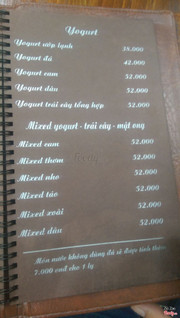 Yogurt
Yogurt nếp lạnh 38.000
Yogurt đá 42.000
Yogurt cam 52.000
Yogurt dâu 52.000
Yogurt trái cây tổng hợp 52.000
Mixed yogurt - trái cây - mật ong
Mixed cam 52.000
Mixed thơm 52.000
Mixed nho 52.000
Mixed táo 52.000
Mixed xoài 52.000
Mixed dâu 52.000
Món nước không dùng đá sẽ được tính thêm
7.000 vnd cho 1 ly